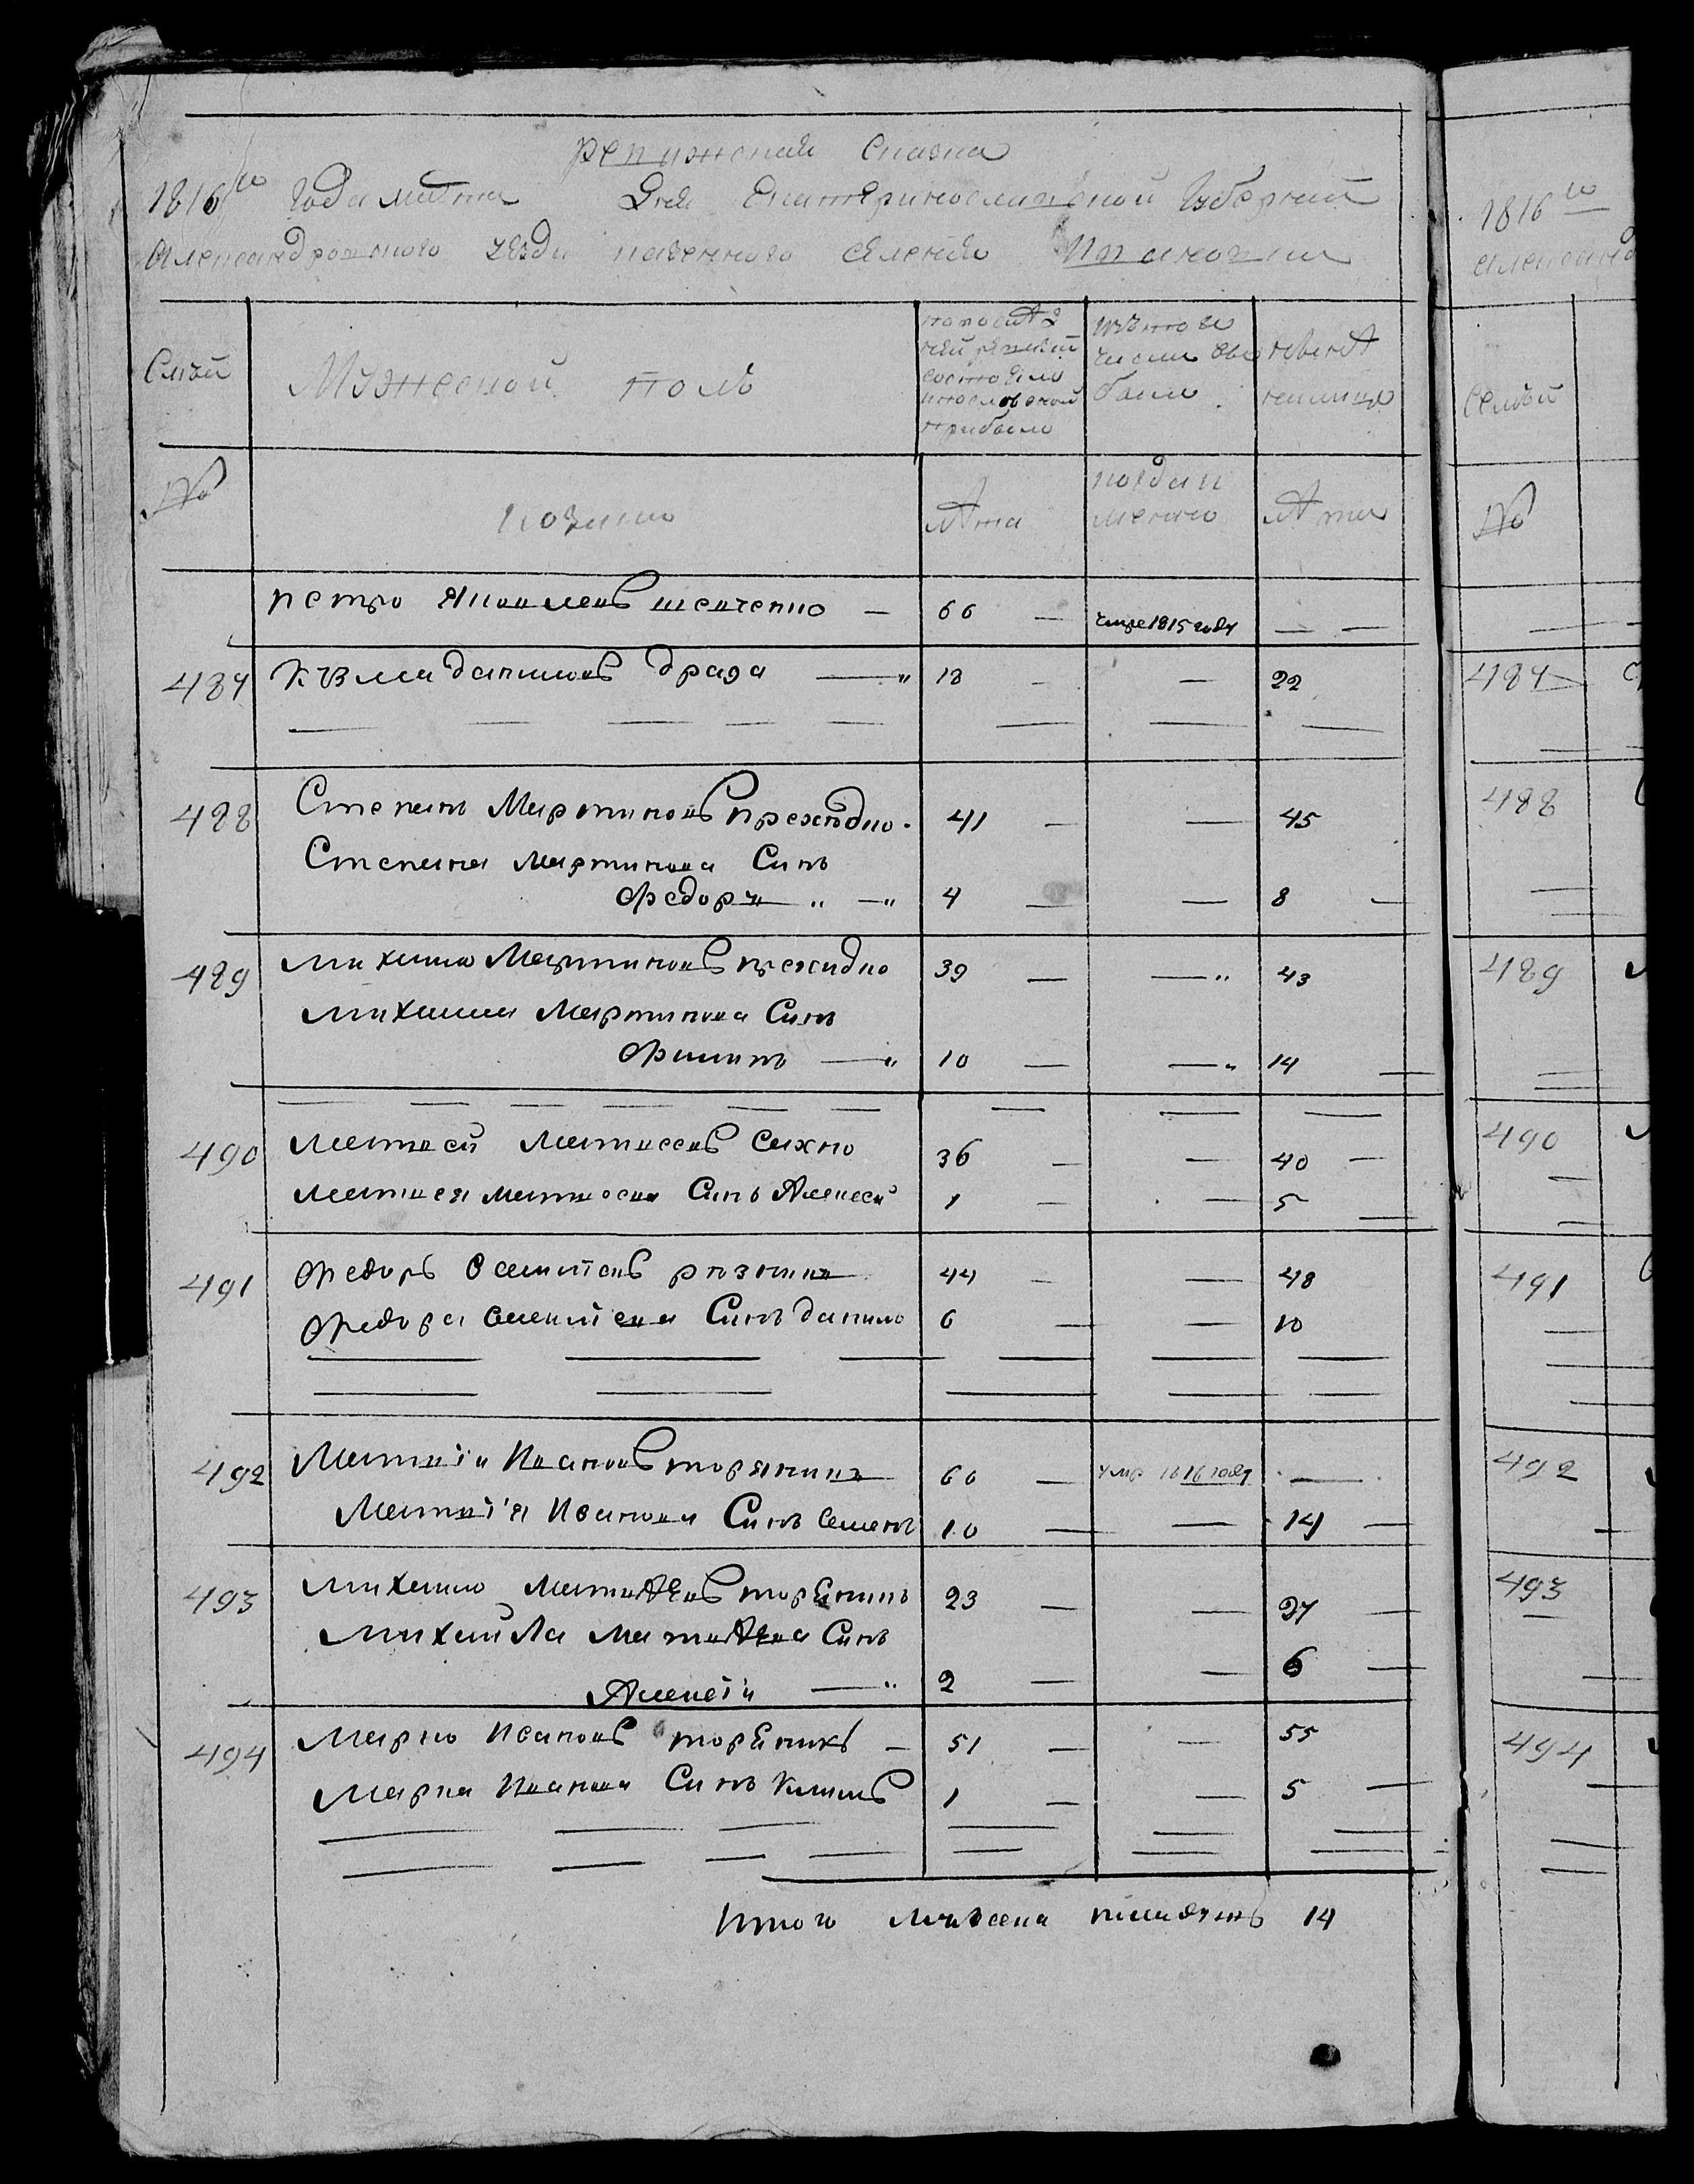 ревижская Сказка
1816го Года марта Дня Екатеринославской Губернии
Александровского уезда казенного селения Ивановки
Семьи
Мужеской полъ
по последней ревизии состояло и после оной прибыло
изъ того числа выбыло
ныне на лицо
№
козаки
лѣта
когда и менно
лѣта
петро Яковлевъ шевченко — 66 — умре 1815 году — —
487 Кузма даниловъ драга — 18 — — 22
488 Степанъ Мартиновъ прехѣдко. 41 — — 45
Степана мартинова Синъ
Федоръ 4 — — 8 —
489 михаило Мартиновъ прехидко 39 — — 43
михаила Мартинова Синъ
Филипъ — 10 — — 14 —
490 матвей матвеевъ сахно 36 — — 40 —
матвея матвеева Синъ Алексей 1 — — 5 —
491 Федоръ Осиповъ резникъ 44 — — 48
Федора Синъ данило 6 — — 10
492 Матвѣй Ивановъ торяникъ 60 — умр 1816 году —
Матвѣя Иванова Синъ Семенъ 10 — — 14 —
493 михаило матвѣевъ торяникъ 23 — — 27 —
михаила матвѣева Синъ
Алексѣй — 2 — — 6 —
494 Марко Ивановъ торяникъ — 51 — — 55
Марка Иванова Синъ Климъ 1 — — 5 —
Итого мужеска наличныхъ 14
1816го
Александ
Семьи
№
487
488
489
490
491
492
493
494